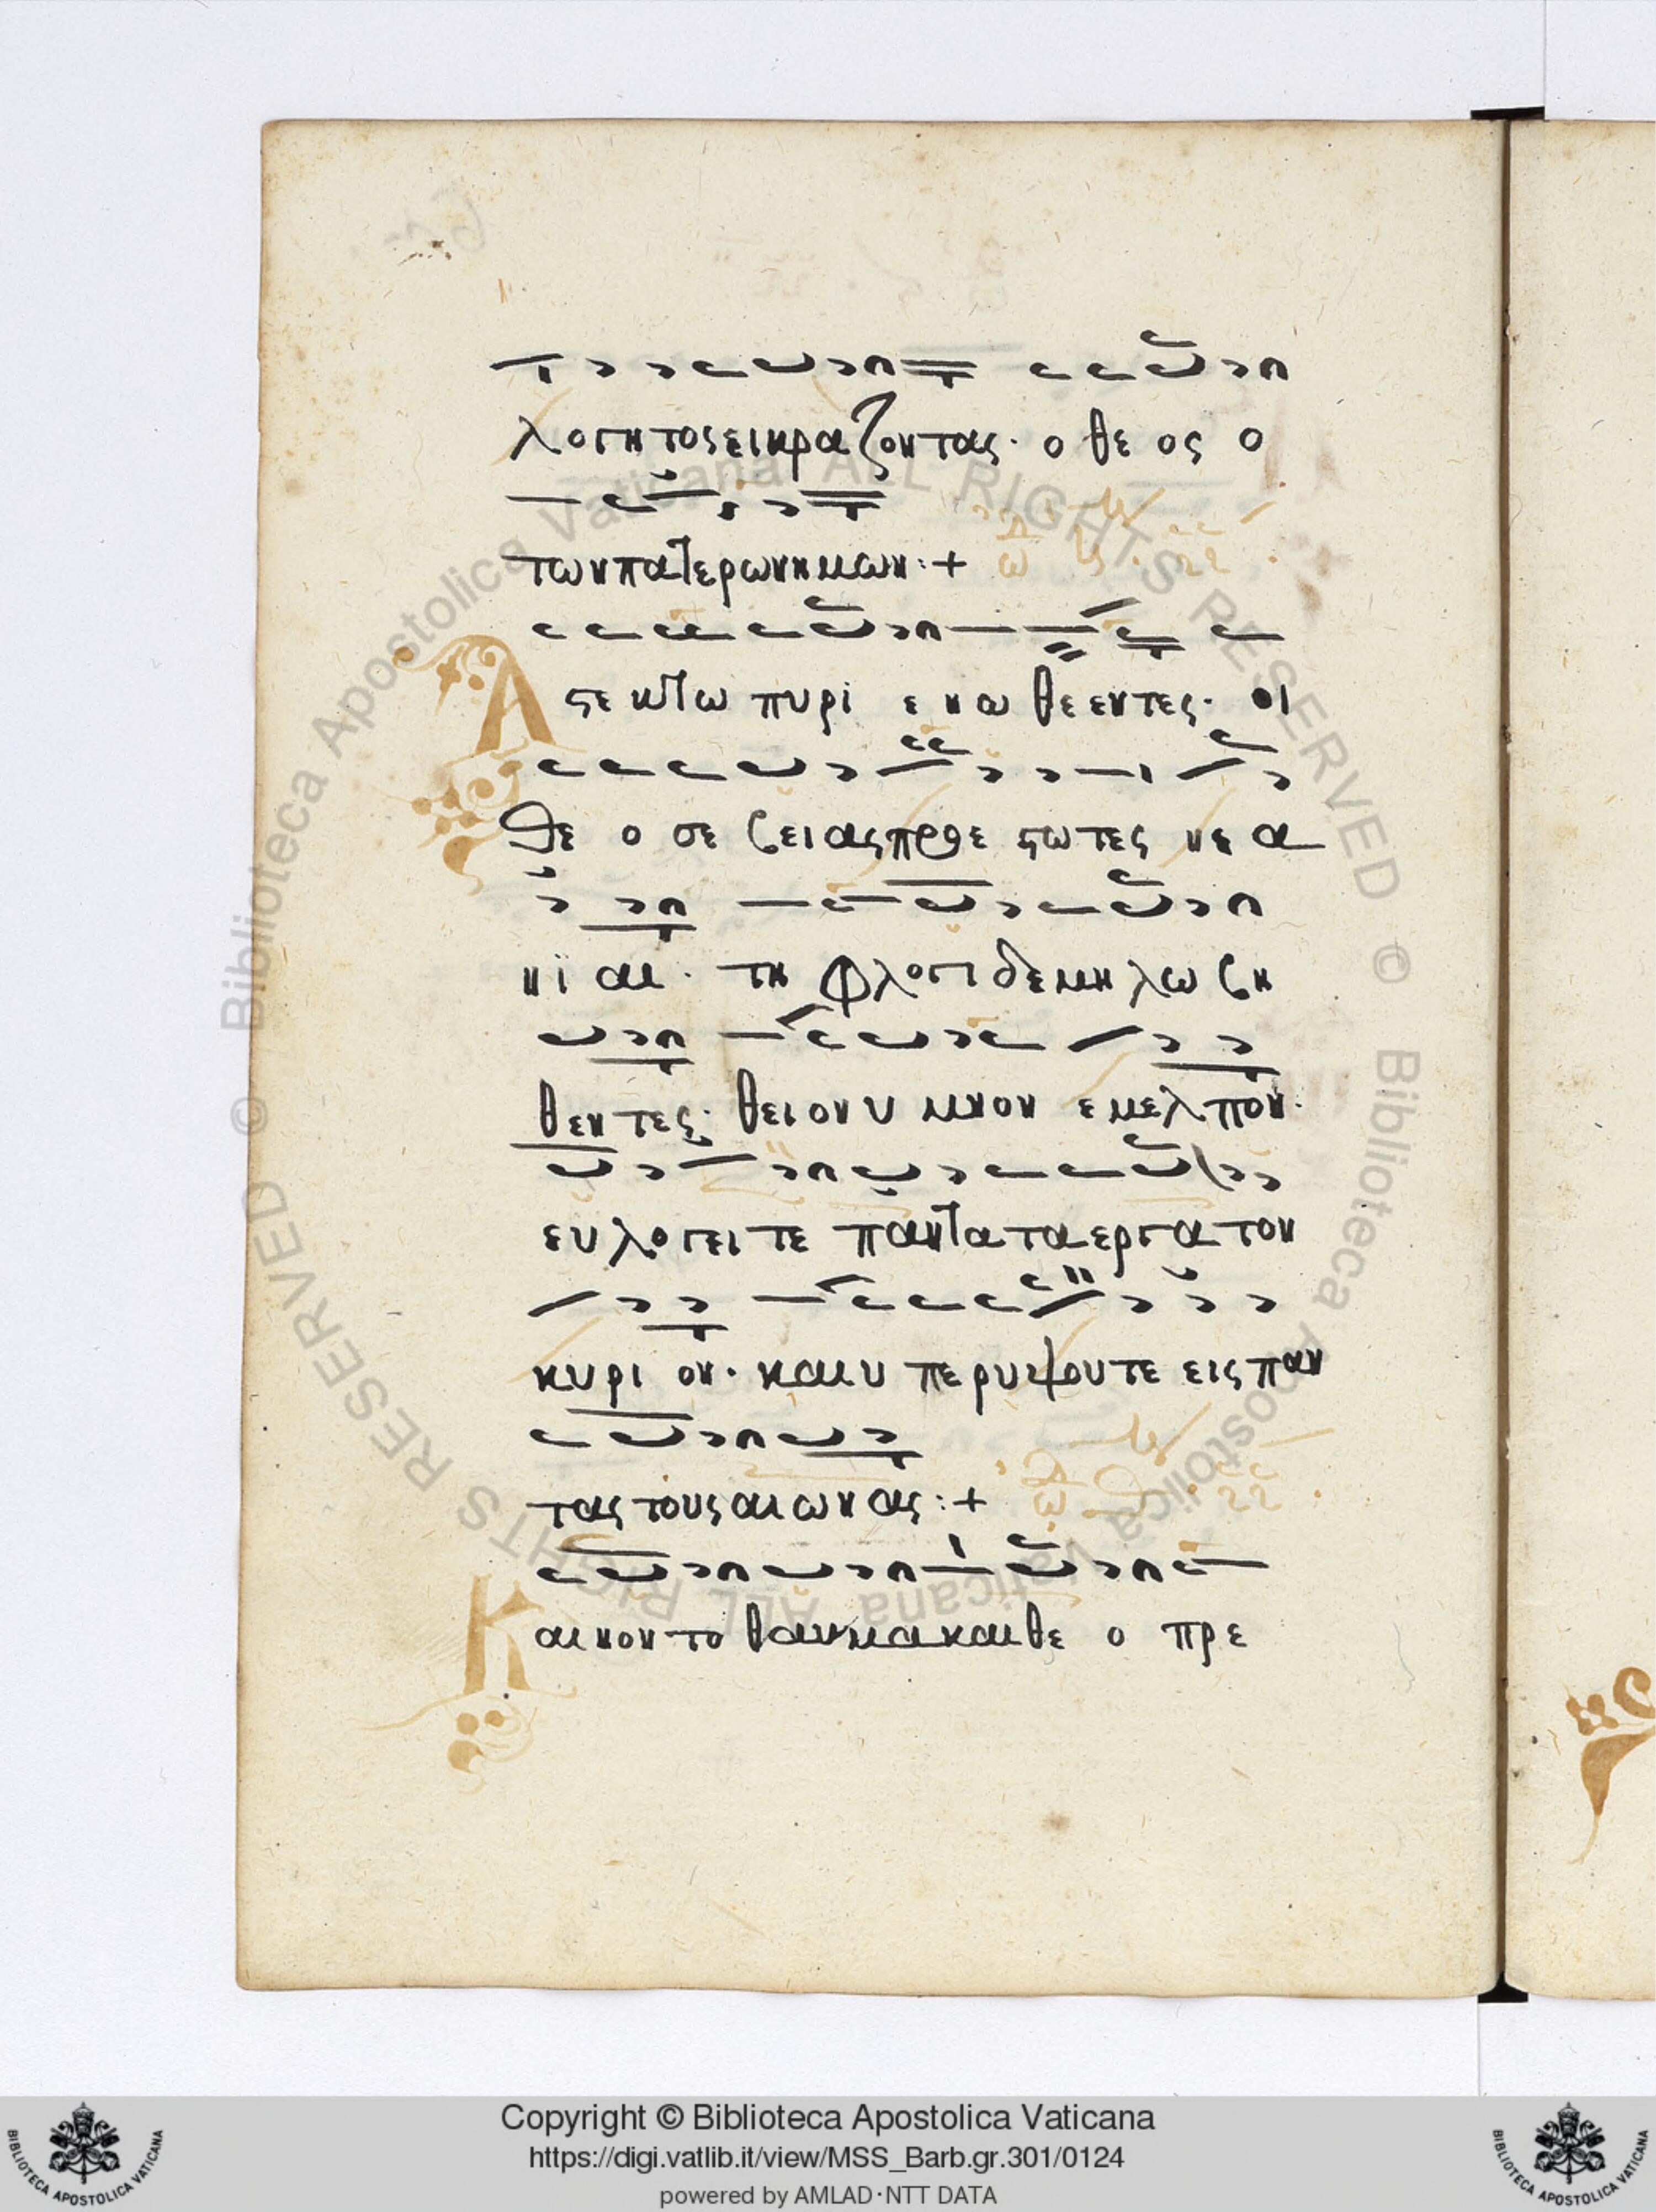 λογητος ει κραζοντας· ο θε ος ο
των πατερων ημων :+
Α στεκτω πυρι ενωθεεντες· οι
θε ο σεβειας προεστωτες νεα
νϊαι· τη φλογι δε μη λωβη
θεντες· θειον υμνον εμελπον·
ευλογειτε παντα τα εργα τον
κυριον· και υπερυψουτε εις παν
τας τους αιωνας :+
Κ αινον το θαυμα και θε ο πρε
© Biblioteca Apostolica Vaticana ALL RIGHTS RESERVED © Biblioteca Apostolica Vaticana ALL RIGHTS RESERVED
Copyright © Biblioteca Apostolica Vaticana
https://digi.vatlib.it/view/MSS_Barb.gr.301/0124
powered by AMLAD·NTT DATA
BIBLIOTECA APOSTOLICA VATICANA
BIBLIOTECA APOSTOLICA VATICANA